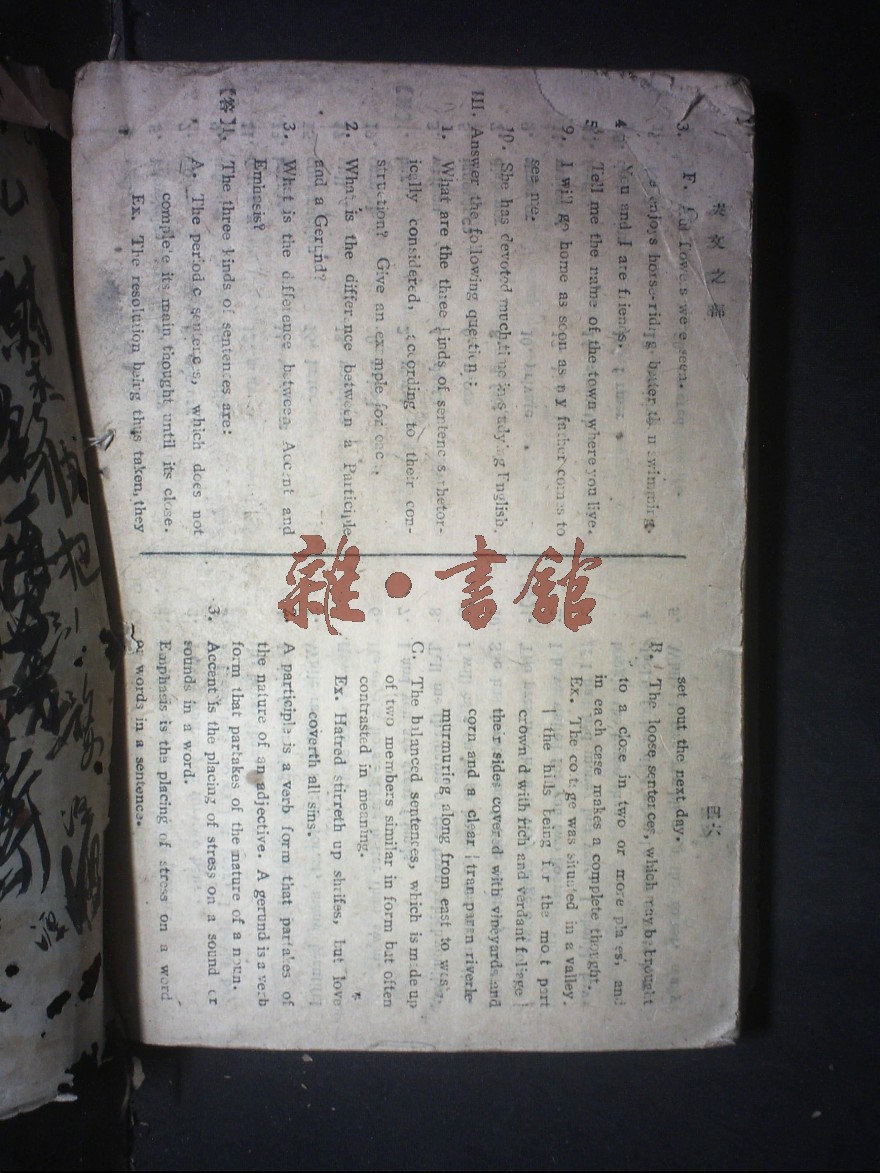 3.
Towers were seen.
enjoys horse-riding better than swimming.
4. You and I are friends.
5. Tell me the name of the town where you live.
9. I will go home as soon as my father comes to
see me.
10. She has devoted much time in studying English.
III. Answer the following question:
1. What are the three kinds of sentences rhetor-
ically considered, according to their con-
struction? Give an example for each.
2. What is the difference between a Participle
and a Gerund?
3. What is the difference between Accent and
Emhasis?
【答】1. The three kinds of sentences are:
A. The periodic sentences, which does not
complete its main thought until its close.
Ex. The resolution being thus taken, they
set out the next day.
B. The loose sentences, which may be brought
to a close in two or more places, and
in each case makes a complete thought.
Ex. The cottage was situated in a valley.
the hills being for the most part
crowned with rich and verdant foliage
their sides covered with vineyards and
corn and a clear transparen riverle
murmuring along from east to west.
C. The balanced sentences, which is made up
of two members similar in form but often
contrasted in meaning.
Ex. Hatred stirreth up shrifes, but love
coverth all sins.
A participle is a verb form that partakes of
the nature of an adjective. A gerund is a verb
form that partakes of the nature of a noun.
3. Accent is the placing of stress on a sound or
sounds in a word.
Emphasis is the placing of stress on a word
or words in a sentence.
雜·書館